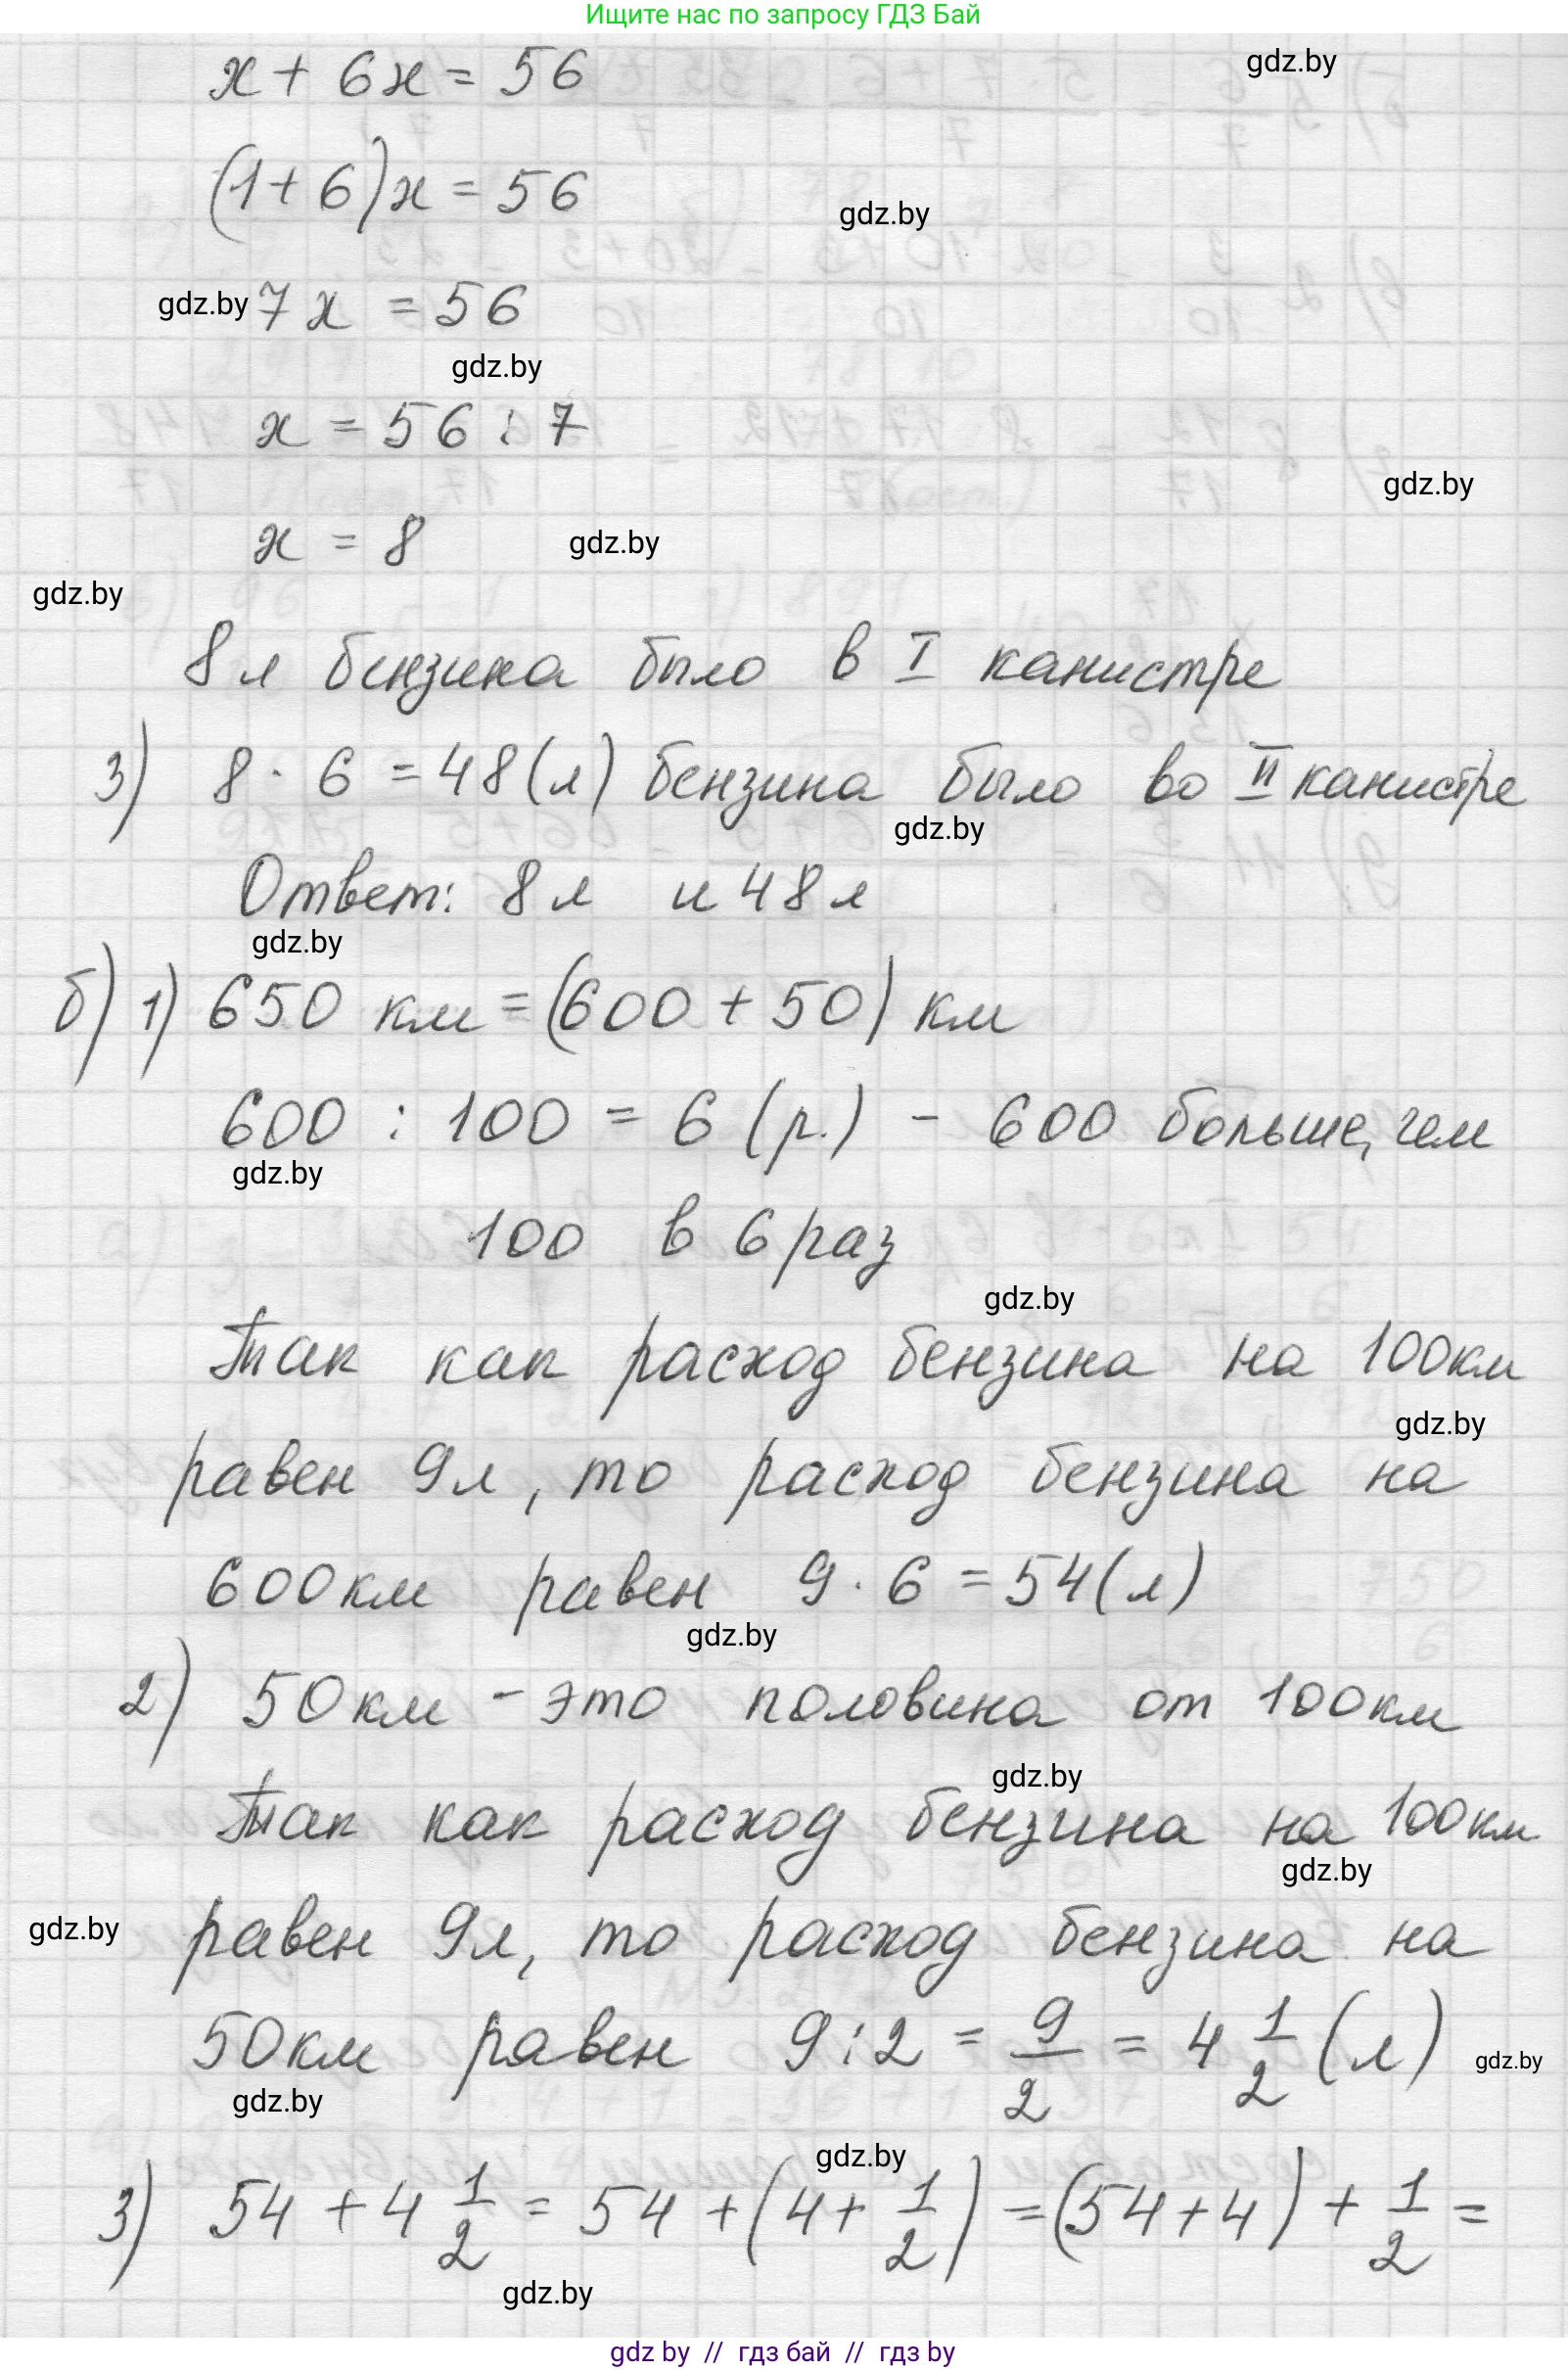 Ищите нас по запросу ГДЗ Бай
x + 6x = 56
gdz.by
(1 + 6)x = 56
gdz.by
gdz.by
7x = 56
gdz.by
x = 56 : 7
gdz.by
x = 8
gdz.by
gdz.by
8 л бензина было в I канистре
3) 8 · 6 = 48 (л) бензина было во II канистре
gdz.by
Ответ: 8 л и 48 л
gdz.by
б) 1) 650 км = (600 + 50) км
600 : 100 = 6 (р.) - 600 больше, чем
gdz.by
100 в 6 раз
gdz.by
Так как расход бензина на 100 км
gdz.by
равен 9 л, то расход бензина на
600 км равен 9 · 6 = 54 (л)
gdz.by
2) 50 км - это половина от 100 км
gdz.by
Так как расход бензина на 100 км
gdz.by
gdz.by
равен 9 л, то расход бензина на
50 км равен 9 : 2 = 9/2 = 4 1/2 (л)
gdz.by
gdz.by
gdz.by
3) 54 + 4 1/2 = 54 + (4 + 1/2) = (54 + 4) + 1/2 =
gdz.by
gdz by // гдз бай // гдз by